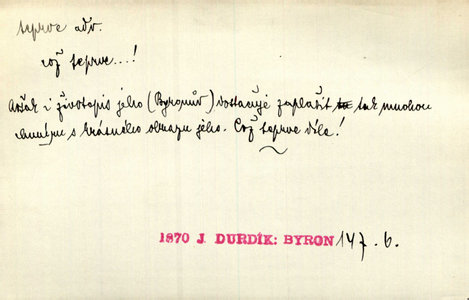 teprve adv.
což teprve...!
Avšak i životopis jeho (Byronův) dostačuje zaplašit tak mnohou
chmúru s krásného obrazu jeho. Což teprve díla!
1870 J. DURDÍK: BYRON 147. 6.